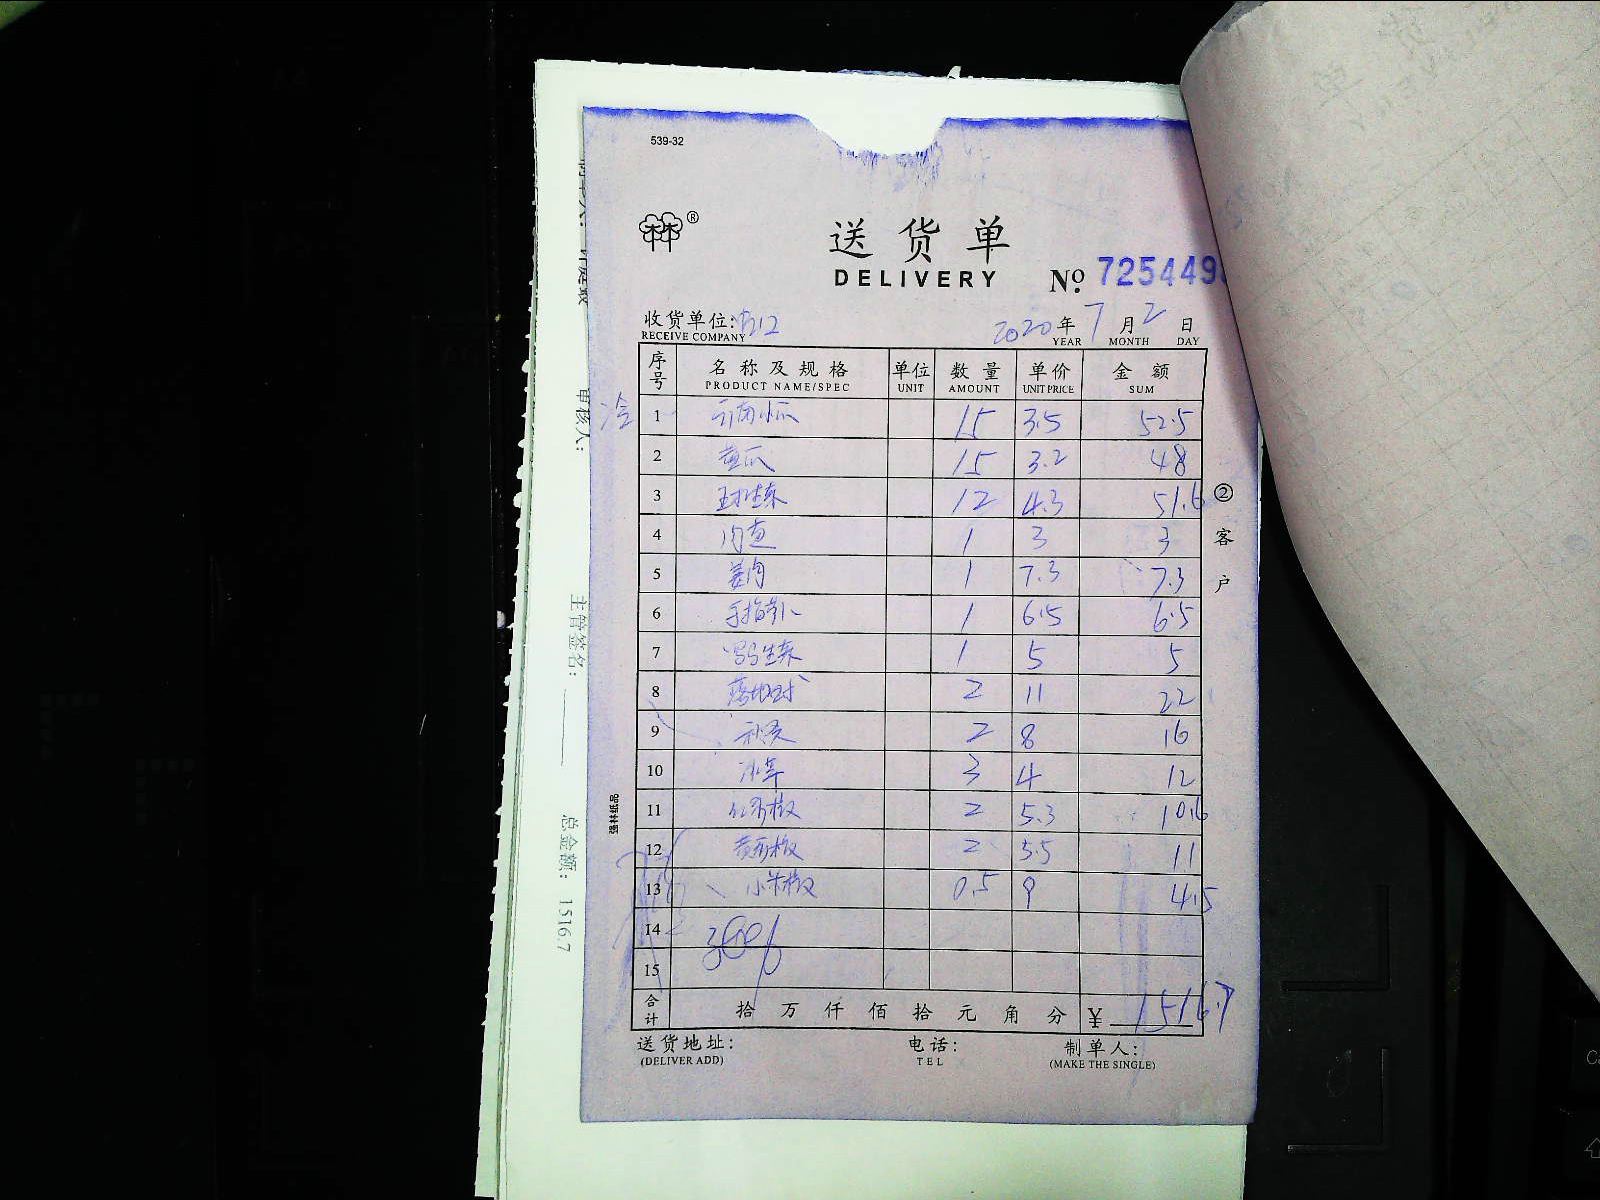 539-32
送货单
DELIVERY
№ 725449
收货单位:
RECEIVE COMPANY
2020年 7月 2日
YEAR MONTH DAY
序号 名称及规格 单位 数量 单价 金额
PRODUCT NAME/SPEC UNIT AMOUNT UNIT PRICE SUM
冷
1 15 3.5 52.5
2 黄瓜 15 3.2 48
3 球生菜 12 4.3 51.6
4 1 3 3
5 姜肉 1 7.3 7.3
6 手指 1 6.5 6.5
7 生菜 1 5 5
8 2 11 22
9 秋葵 2 8 16
10 冰草 3 4 12
11 红彩椒 2 5.3 10.6
12 黄彩椒 2 5.5 11
13 小米椒 0.5 9 4.5
14
15
合计 拾万仟佰拾元角分 ¥ 1516.7
送货地址: 电话: 制单人:
(DELIVER ADD) TEL (MAKE THE SINGLE)
②客户
强林纸品
审核人:
主管签名:
总金额: 1516.7